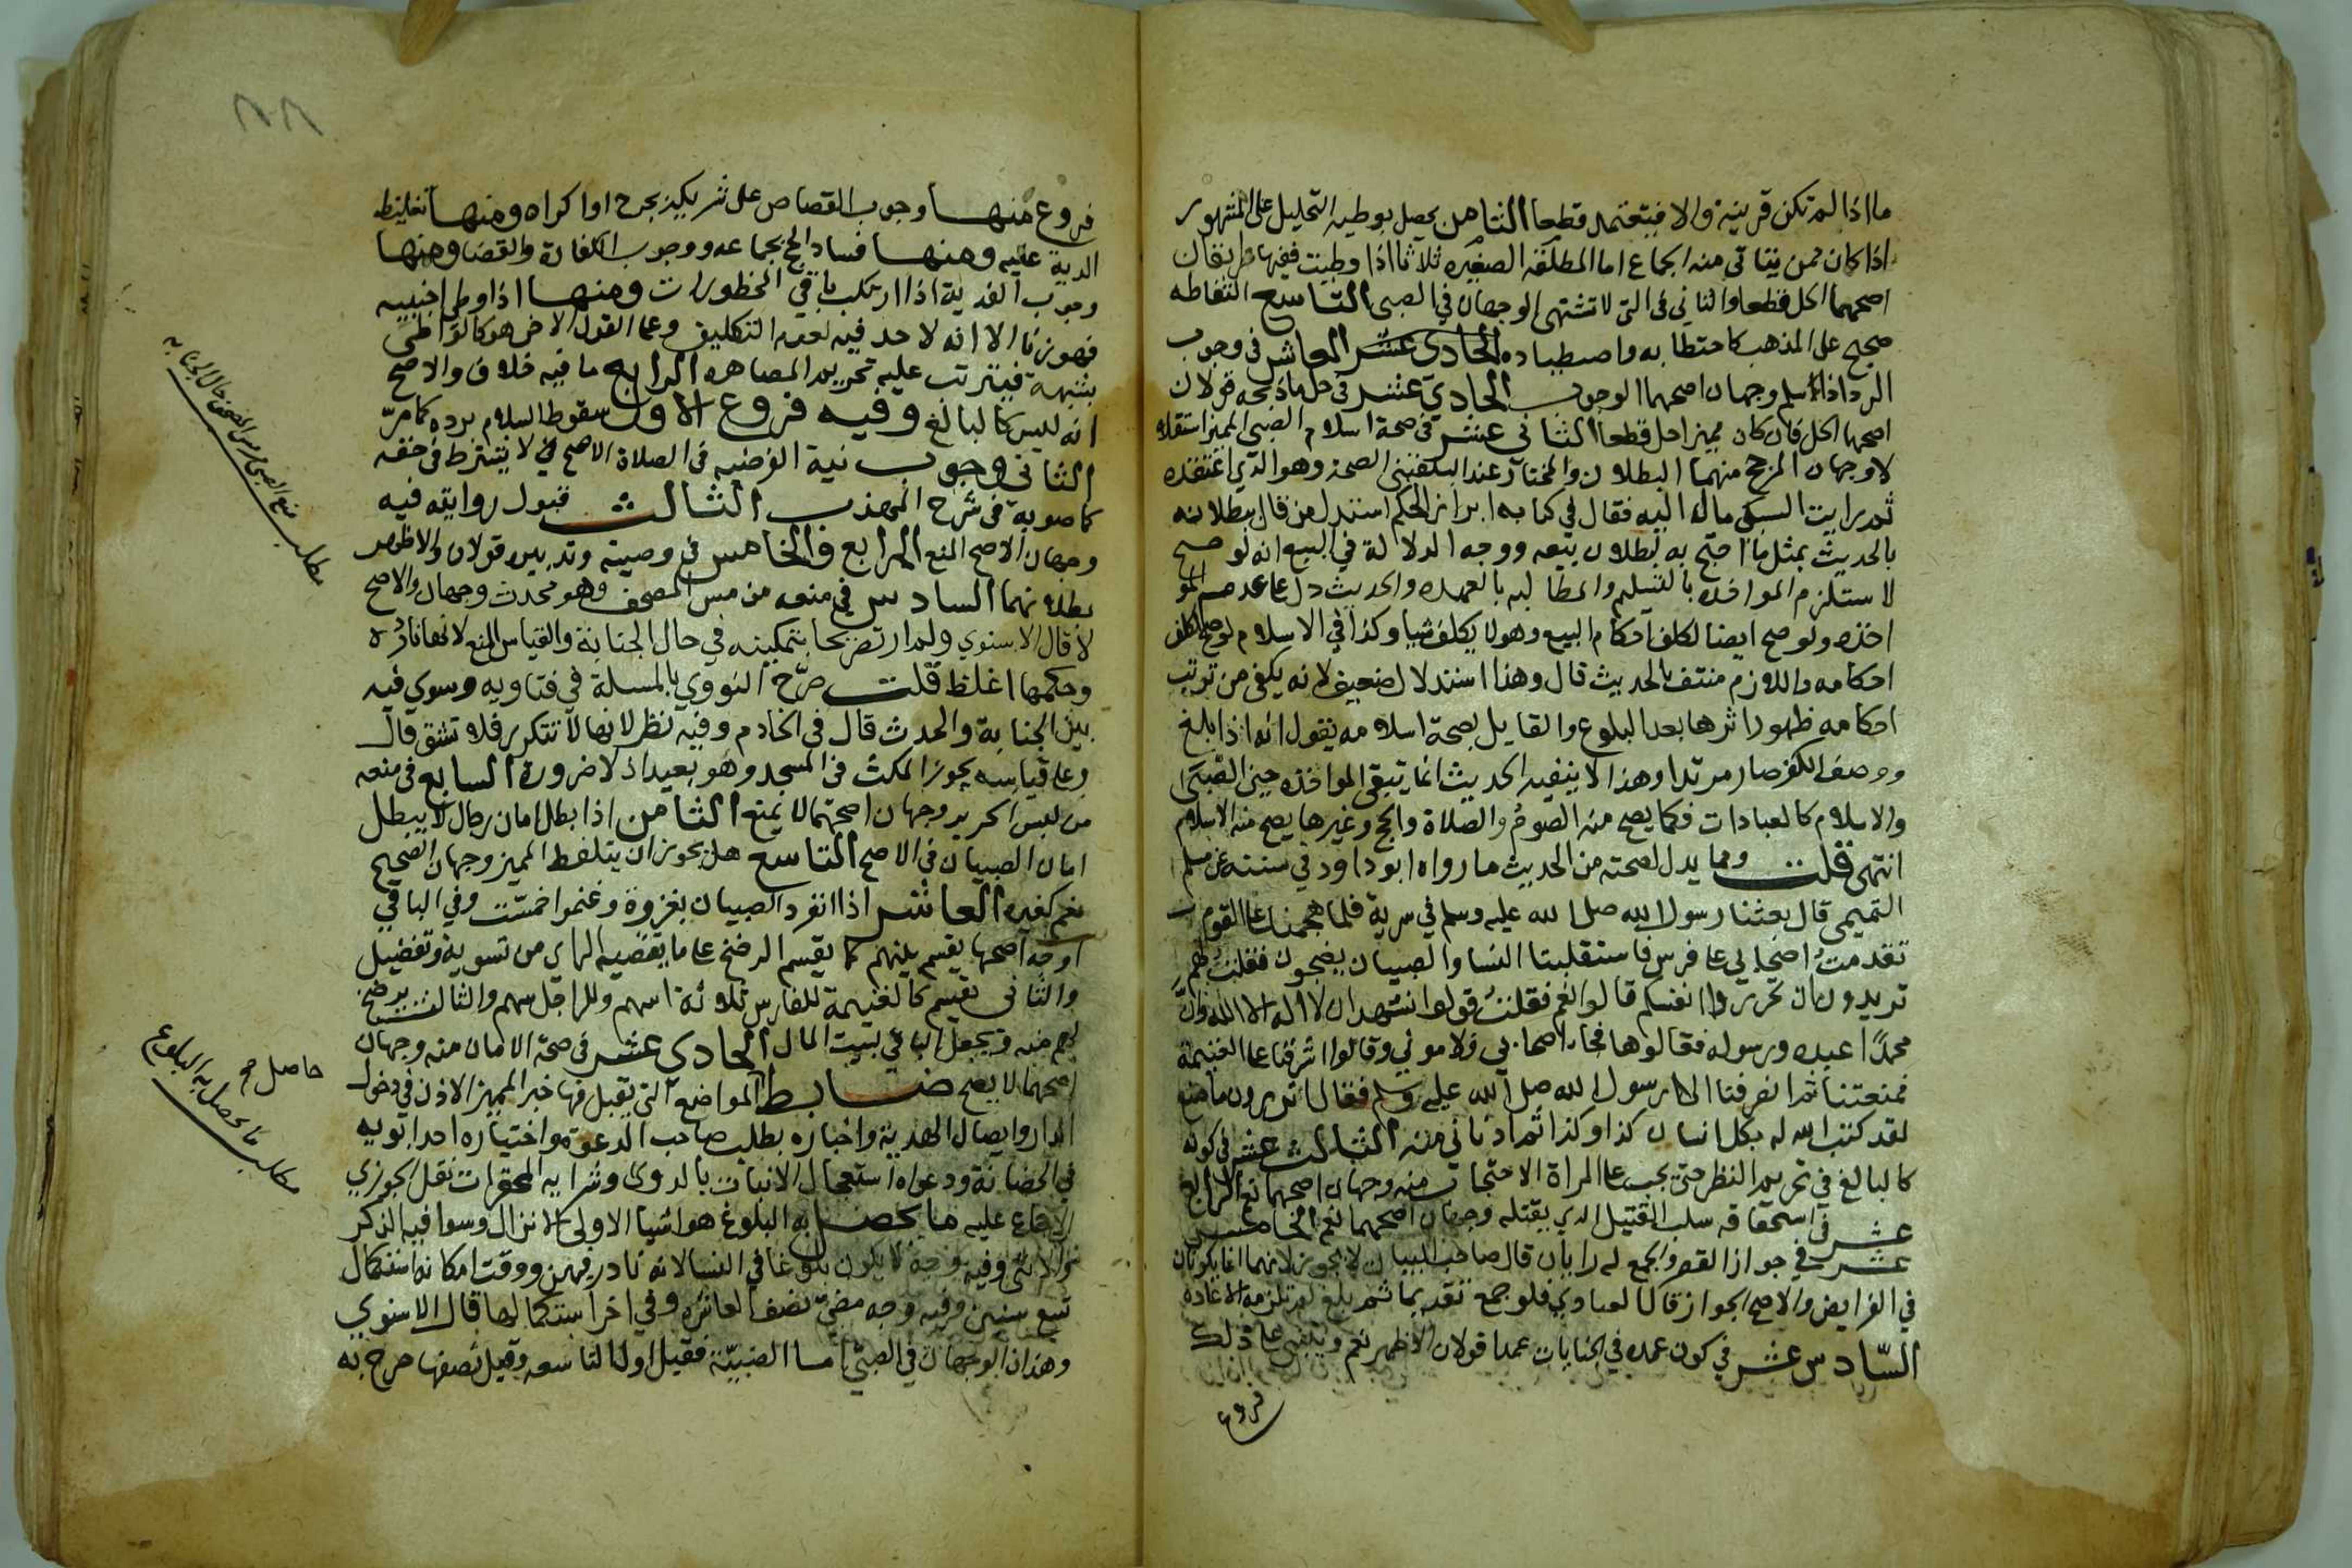 ما اذا لم تكن قرينة والا فيعتمد قطعا الثامن يحصل بوطيه التحليل على المشهور
اذا كان ممن يتاتى منه الجماع اما المطلقه الصغيره ثلاثا اذا وطيت ففيها طريقان
اصحهما الحل قطعا والثاني في التي لا تشتهى الوجهان في الصبي التاسع التقاطه
صحيح على المذهب كاحتطابه واصطياده الحادي عشر العاشر في وجوب
الرد اذا سلم وجهان اصحهما الوجوب الحادي عشر في حل ما ذبحه قولان
اصحهما الحل فان كان مميزا حل قطعا الثاني عشر في صحة اسلام الصبي المميز استقلالا
لا وجهان المرجح منهما البطلان والمختار عند البلقيني الصحة وهو الذي اعتقده
ثم رايت السبكي مال اليه فقال في كتابه ابراز الحكم استدل من قال ببطلانه
بالحديث بمثل ما احتج به لبطلان بيعه ووجه الدلالة في البيع انه لو صح
لاستلزم المواخذه بالتسليم والمطالبه بالعهده والحديث دل على عدم المو
اخذه ولو صح ايضا لكلف احكام البيع وهو لا يكلف شيا وكذا في الاسلام لو صح لكلف
احكامه واللازم منتف بالحديث قال وهذا استدلال ضعيف لانه يكفي من ترتب
احكامه ظهور اثرها بعد البلوغ والقايل بصحة اسلامه يقول انه اذا بلغ
ووصف الكفر صار مرتدا وهذا لا ينفيه الحديث انما تبقى المواخذه حين الصبى
والاسلام كالعبادات فكما يصح منه الصوم والصلاة والحج وغيرها يصح منه الاسلام
انتهى قلت ومما يدل لصحته من الحديث ما رواه ابو داود في سننه عن مسلم
التميمي قال بعثنا رسول الله صلى الله عليه وسلم في سرية فلما هجمنا على القوم
تقدمت اصحابي على فرس فاستقلبنا النسا والصبيان يضجون فقلت لهم
تريدون ان تحرزوا انفسكم قالوا نعم فقلت قولوا نشهد ان لا اله الا الله وان
محمدا عبده ورسوله فقالوها فجاء اصحابي فلاموني وقالوا اشرفنا على الغنيمة
فمنعتنا ثم انصرفنا الى رسول الله صلى الله عليه وسلم فقال اتدرون ما صنع
لقد كتب الله له بكل انسان كذا وكذا ثم ادناني منه الثالث عشر في كونه
كالبالغ في تحريم النظر حتى يجب على المراة الاحتجاب منه وجهان اصحهما نعم الرابع
عشر في استحقاقه سلب القتيل الذي يقتله وجهان اصحهما نعم الخامس
عشر في جواز القصر والجمع له رايان قال صاحب البيان لا يجوز لانهما انما يكونان
في الفرايض والاصح الجواز قال العبادي فلو جمع تقديما ثم بلغ لم تلزمه الاعادة
السادس عشر في كون عمده في الجنايات عمدا قولان الاظهر نعم ويبتنى على ذلك
فروع
٨٨
فروع منها وجوب القصاص على شريكه بجرح او اكراه ومنها تغليظ
الدية عليه ومنها فساد الحج بجماعه ووجوب الكفارة والقضا ومنها
وجوب الفدية اذا ارتكب باقي المحظورات ومنها اذا وطى اجنبيه
فهو زنا الا انه لا حد فيه لعدم التكليف وعلى القول الاخر هو كالواطى
بشبهة فيترتب عليه تحريم المصاهره الرابع ما فيه خلاف والاصح
انه ليس كالبالغ وفيه فروع الاول سقوط السلام برده كما مر
الثاني وجوب نية الفرضيه في الصلاة الاصح لا يشترط في حقه
كما صوبه في شرح المهذب الثالث قبول روايته فيه
وجهان الاصح المنع الرابع والخامس في وصيته وتدبيره قولان والاظهر
بطلانهما السادس في منعه من مس المصحف وهو محدث وجهان والاصح
لا قال الاسنوي ولم ار تصريحا بتمكينه في حال الجنابة والقياس المنع لانها نادره
وحكمها اغلظ قلت صرح النووي بالمسلة في فتاويه وسوى فيه
بين الجنابة والحدث قال في الخادم وفيه نظر لانها لا تتكرر فلا تشق قال
وعلى قياسه يجوز المكث في المسجد وهو بعيد اذ لا ضرورة السابع في منعه
من لبس الحرير وجهان اصحهما لا يمنع الثامن اذا بطل امان رجال لا يبطل
امان الصبيان في الاصح التاسع هل يجوز ان يلتقط المميز وجهان الصحيح
نعم كغيره العاشر اذا انفرد الصبيان بغزوة وغنموا خمست وفي الباقي
اوجه اصحها يقسم بينهم كما يقسم الرضخ على ما يقتضيه الراي من تسوية وتفضيل
والثاني تقسم كالغنيمة للفارس ثلاثة اسهم وللراجل سهم والثالث يرضخ
لهم منه ويجعل الباقي لبيت المال الحادي عشر في صحة الامان منه وجهان
اصحهما لا يصح ضابط المواضع التي يقبل فيها خبر المميز الاذن في دخول
الدار وايصال الهدية واخباره بطلب صاحب الدعوة واختياره احد ابويه
في الحضانة ودعواه استعجال الانبات بالدوى وشرايه المحقرات نقل الجوزي
الاجماع عليه ما يحصل به البلوغ هو اشيا الاولى الانزال وسوا فيه الذكر
والانثى وفيه وجه لا يكون بلوغا في النسا لانه نادر فيهن ووقت امكانه استكمال
تسع سنين وفيه وجه مضي نصف العاشره وفي اخر استكمالها قال الاسنوي
وهذان الوجهان في الصبي اما الصبية فقيل اول التاسعه وقيل نصفها صرح به
مطلب منع الصبي من مس المصحف حال الجنابه
حاصل
مطلب ما يحصل به البلوغ